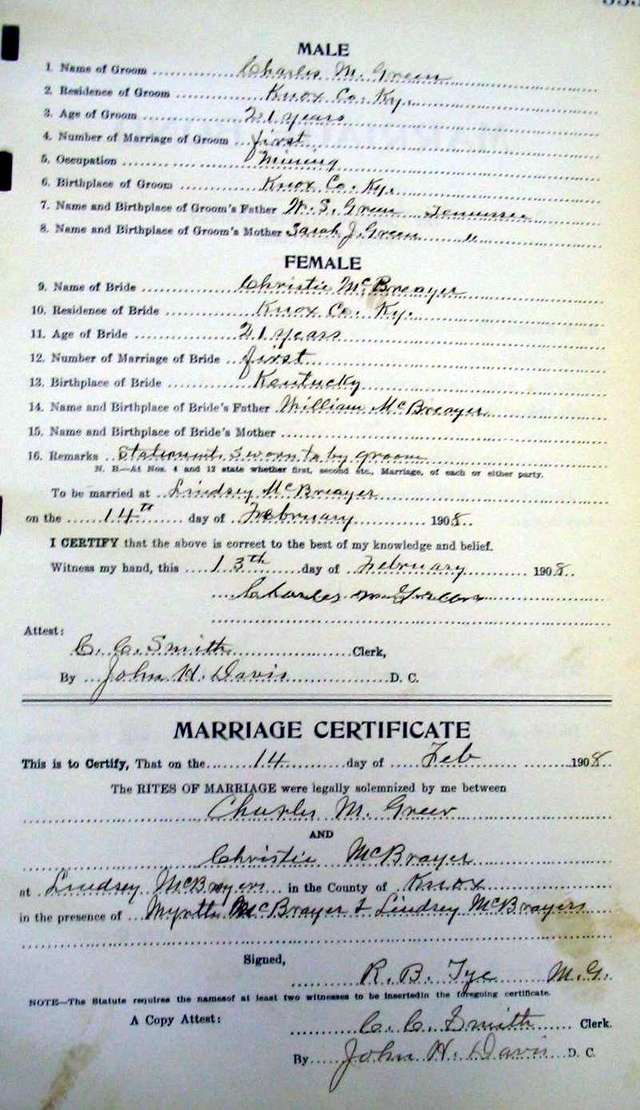 MALE
1. Name of Groom Charles M. Green
2. Residence of Groom Knox Co. Ky.
3. Age of Groom 21 years
4. Number of Marriage of Groom first
5. Occupation Mining
6. Birthplace of Groom Knox Co. Ky.
7. Name and Birthplace of Groom's Father W. S. Green Tennessee
8. Name and Birthplace of Groom's Mother Sarah J. Green "
FEMALE
9. Name of Bride Christie McBreayer
10. Residence of Bride Knox Co. Ky.
11. Age of Bride 21 years
12. Number of Marriage of Bride first
13. Birthplace of Bride Kentucky
14. Name and Birthplace of Bride's Father William McBreayer
15. Name and Birthplace of Bride's Mother
16. Remarks Statement Sworn to by groom
N. B.—At Nos. 4 and 12 state whether first, second etc., Marriage, of each or either party.
To be married at Lindsey McBreayer
on the 14th day of February 1908.
I CERTIFY that the above is correct to the best of my knowledge and belief.
Witness my hand, this 13th day of February 1908.
Charles M Green
Attest:
C. C. Smith Clerk,
By John H. Davis D. C.
MARRIAGE CERTIFICATE
This is to Certify, That on the 14 day of Feb 1908.
The RITES OF MARRIAGE were legally solemnized by me between
Charles M. Green
AND
Christie McBrayer
at Lindsey McBrayers in the County of Knox
in the presence of Myrtle McBrayer & Lindsey McBrayers
Signed,
R. B. Tye M.G.
NOTE—The Statute requires the namesof at least two witnesses to be insertedin the foregoing certificate.
A Copy Attest: C. C. Smith Clerk.
By John H. Davis D. C.